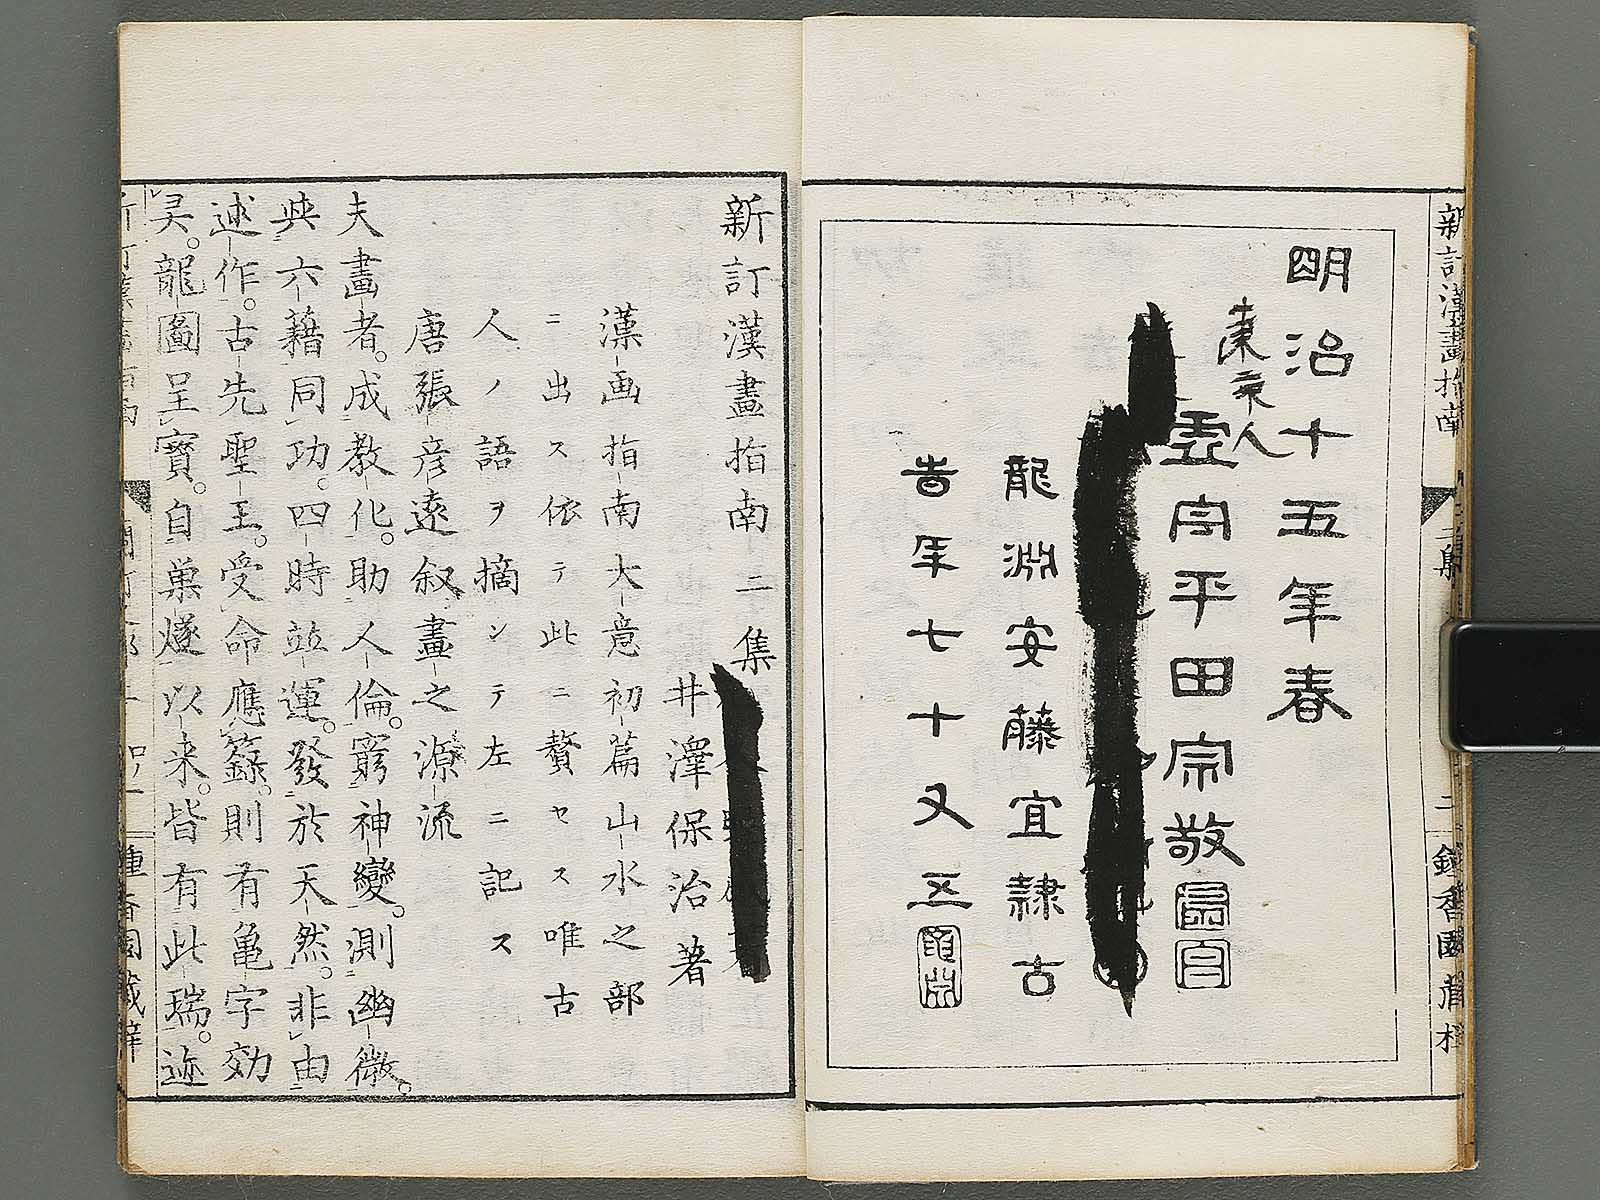 新訂漢畫指南
二集
二
鍾香園蔵梓
明治十五年春
東京人
字平田宗敬
龍淵安藤宜隷古
旹年七十又五
新訂漢畫指南 二集
井澤保治著
漢画指南大意初篇山水之部
ニ出ス依テ此ニ贅セス唯古
人ノ語ヲ摘ンテ左ニ記ス
唐張彦遠叙畫之源流
夫畫者。成教化。助人倫。窮神變。測幽微。
與六藉同功。四時並運。發於天然。非由
述作。古先聖王。受命應籙。則有亀字効
灵。龍圖呈寶。自巢燧以来。皆有此瑞。迹
鍾香園蔵梓